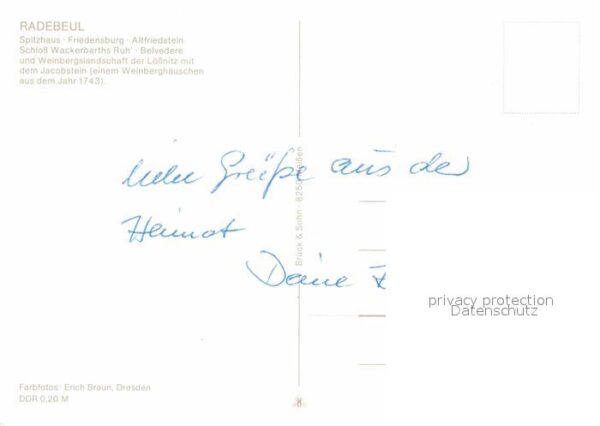 RADEBEUL
Spitzhaus · Friedensburg · Altfriedstein
Schloß Wackerbarths Ruh' · Belvedere
und Weinbergslandschaft der Lößnitz mit
dem Jacobstein (einem Weinberghäuschen
aus dem Jahr 1743).
Grüße aus der
Heimat
Deine
Brück & Sohn · 825
privacy protection
Datenschutz
Farbfotos: Erich Braun, Dresden
DDR 0,20 M